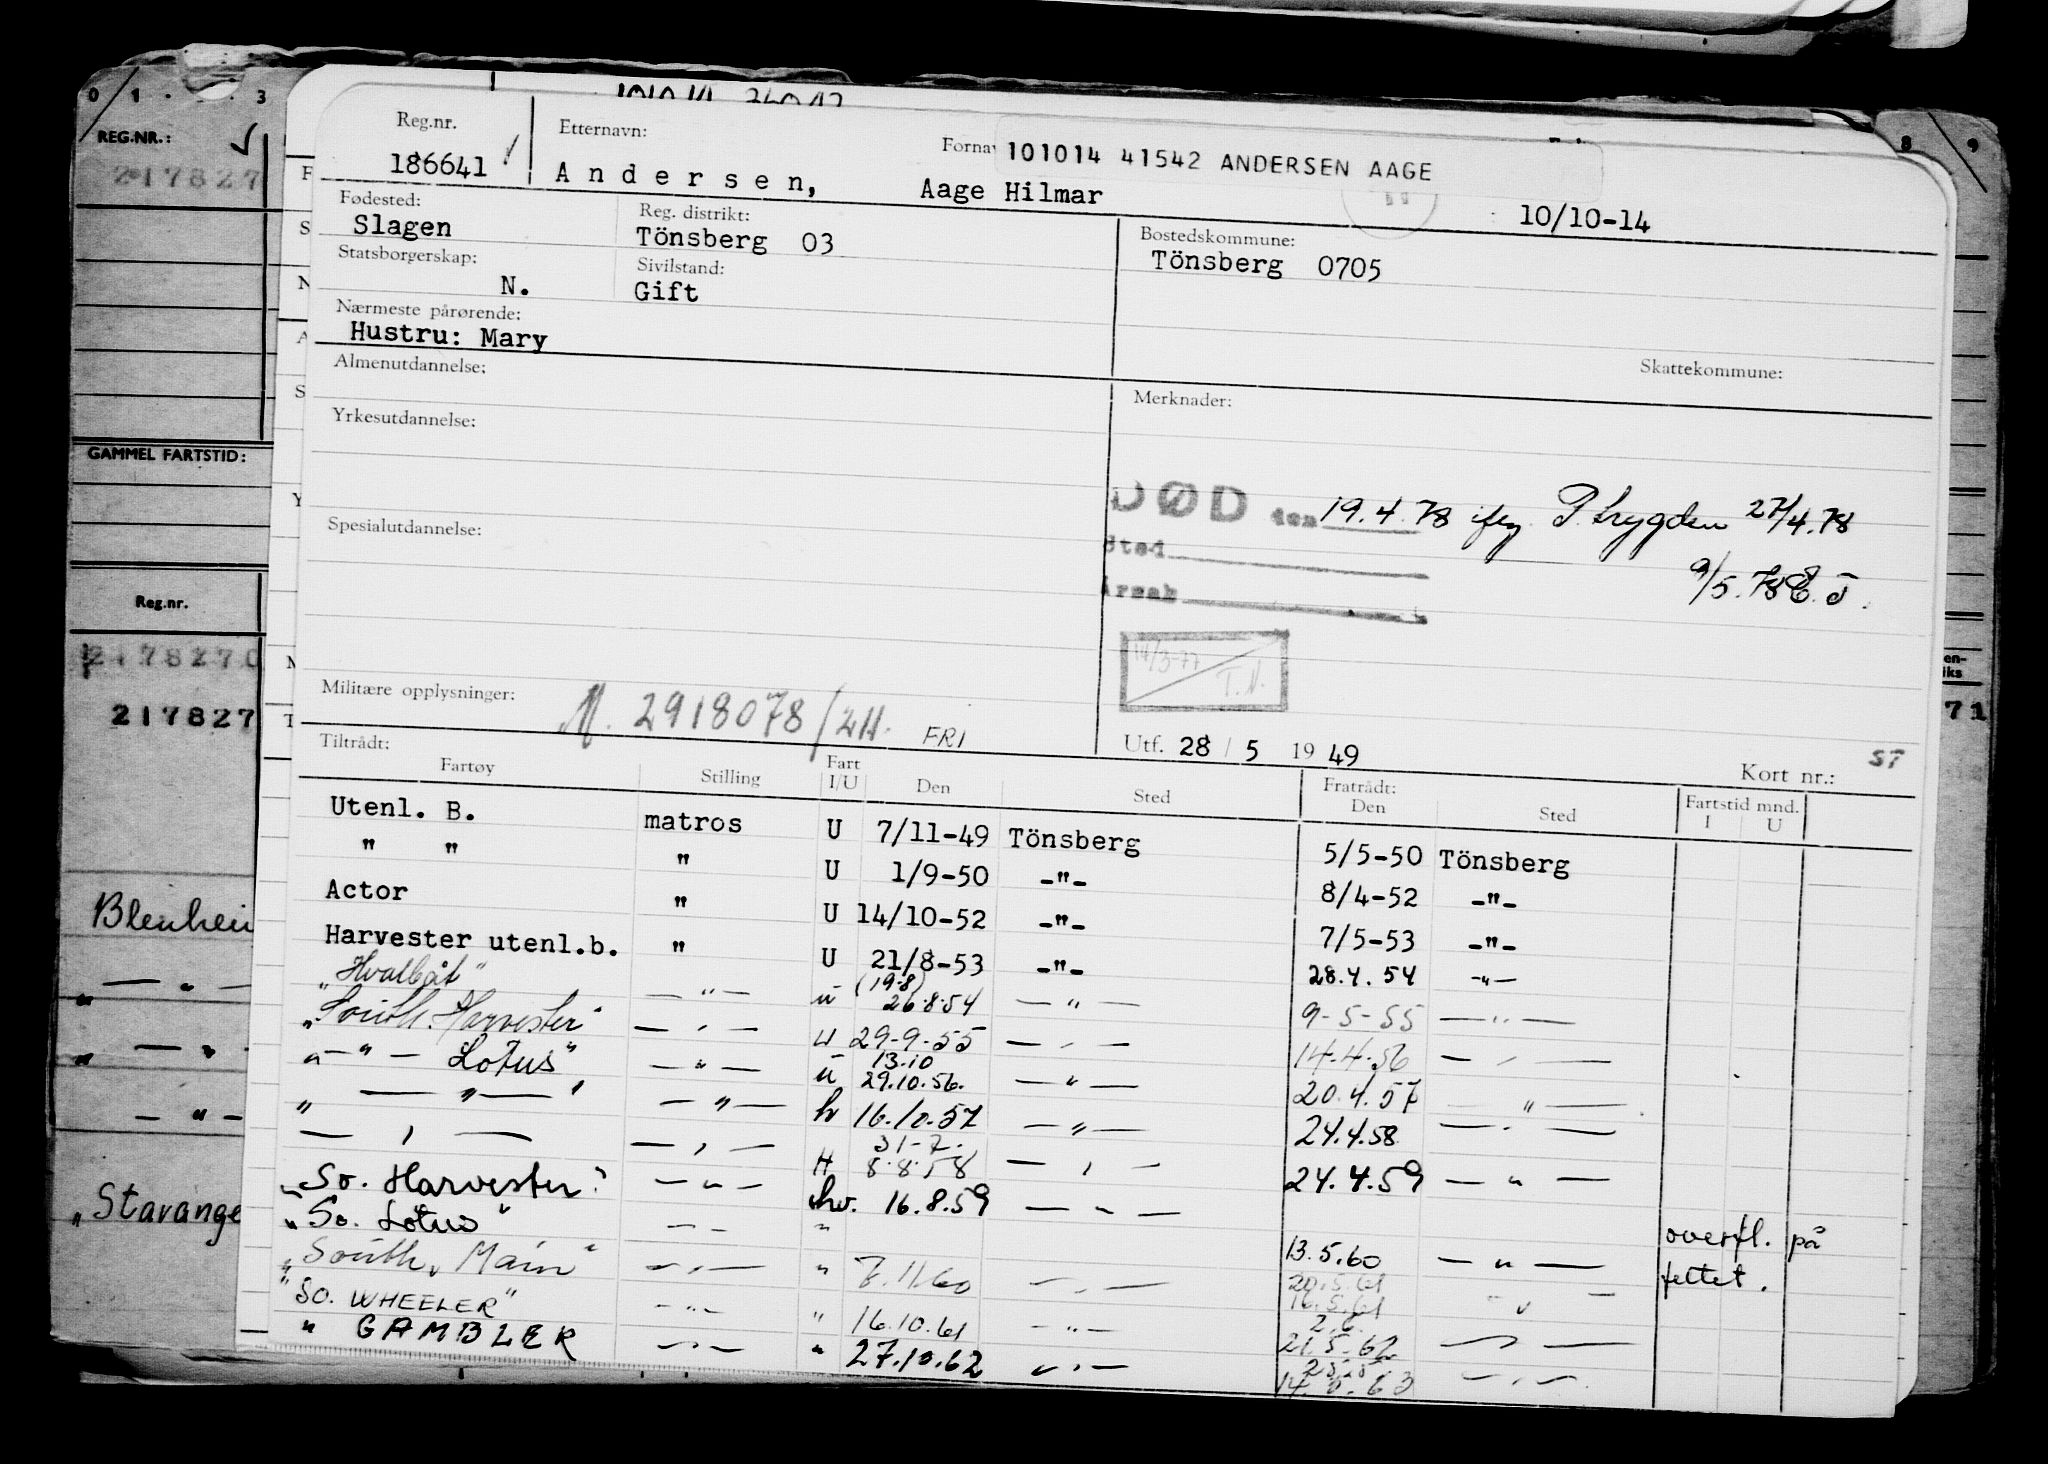 0 1 . . 3
REG.NR.:
217827
GAMMEL FARTSTID:
Reg.nr.
2178270
217827
Blenheim
— " —
" — " —
— " —
"Stavange
8 9
71
Reg.nr.
186641
Etternavn:
Andersen,
Aage Hilmar
101014 41542 ANDERSEN AAGE
10/10-14
Fødested:
Slagen
Reg. distrikt:
Tönsberg 03
Bostedskommune:
Tönsberg 0705
Statsborgerskap:
N.
Sivilstand:
Gift
Nærmeste pårørende:
Hustru: Mary
Skattekommune:
Almenutdannelse:
Merknader:
Yrkesutdannelse:
DØD den 19.4.78 iføg. P. trygden 27/4.78
Sted
Årsak
9/5.78 E.J.
Spesialutdannelse:
14/3-77
T.N.
Militære opplysninger:
M. 2918078/2H. FRI
Utf. 28 / 5 19 49
Kort nr.:
ST
Tiltrådt:
Fartøy Stilling Fart I/U Den Sted Fratrådt: Den Sted Fartstid mnd. I U
Utenl. B. matros U 7/11-49 Tönsberg 5/5-50 Tönsberg
" " " U 1/9-50 -"- 8/4-52 -"-
Actor " U 14/10-52 -"- 7/5-53 -"-
Harvester utenl.b. " U 21/8-53 -"- 28.4.54 -"-
"Hvalbåt" — " — u (19.8) 26.8.54 — " — 9-5-55 — " —
"South. Harvester" — " — U 29-9-55 — " — 14.4.56 — " —
" — " — Lotus" — " — u 13.10 29.10.56. — " — 20.4.57 — " —
" — " — " — " — hv 16.10.57 — " — 24.4.58 — " —
— " — — " — H 31-7. 8.8.58 — " — 24.4.59 — " —
"So. Harvester" — " — hv. 16.8.59 — " —
"So. Lotus" — " — " 13.5.60 — " — overfl. på feltet.
"South. Main" — " — " 7.11.60 — " — 20.5.61 16.5.61 " —
"SO. WHEELER" — " — " 16.10.61 — " — 2.6. 21.5.62 — " —
" GAMBLER — " — " 27.10.62 — " — — " —